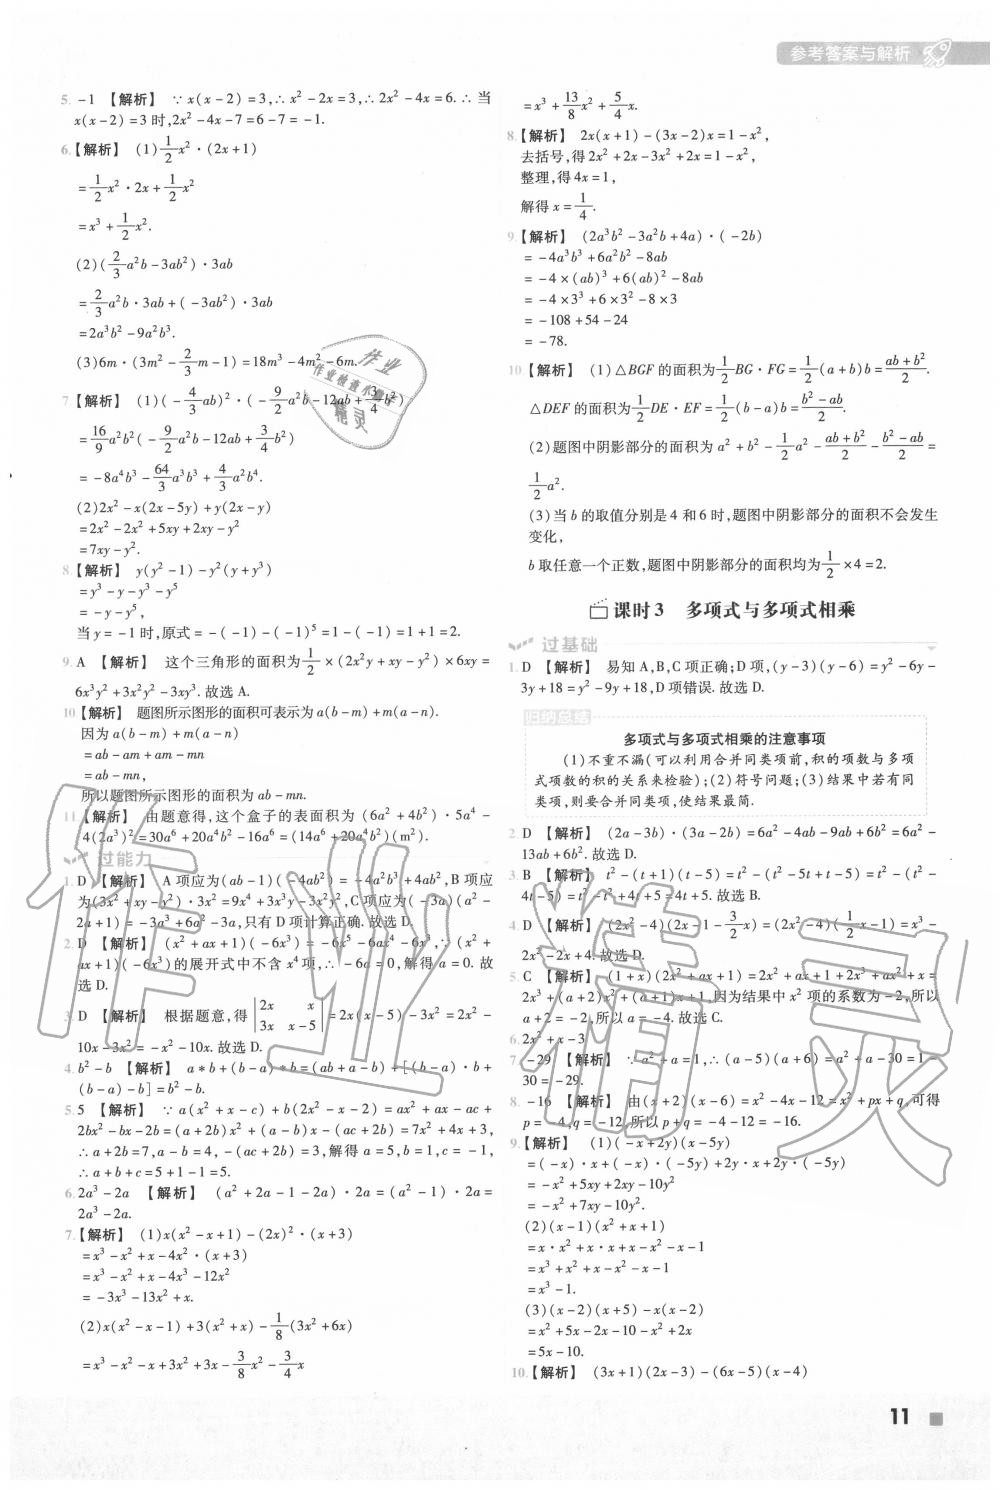 参考答案与解析
5. -1 【解析】 ∵x(x-2)=3,∴x²-2x=3,∴2x²-4x=6.∴当
x(x-2)=3时,2x²-4x-7=6-7=-1.
6.【解析】 (1)1/2x²·(2x+1)
=1/2x²·2x+1/2x²
=x³+1/2x².
(2)(2/3a²b-3ab²)·3ab
=2/3a²b·3ab+(-3ab²)·3ab
=2a³b²-9a²b³.
(3)6m·(3m²-2/3m-1)=18m³-4m²-6m.
7.【解析】 (1)(-4/3ab)²·(-9/2a²b-12ab+3/4b²)
=16/9a²b²(-9/2a²b-12ab+3/4b²)
=-8a⁴b³-64/3a³b³+4/3a²b⁴.
(2)2x²-x(2x-5y)+y(2x-y)
=2x²-2x²+5xy+2xy-y²
=7xy-y².
8.【解析】 y(y²-1)-y²(y+y³)
=y³-y-y³-y⁵
=-y-y⁵,
当y=-1时,原式=-(-1)-(-1)⁵=1-(-1)=1+1=2.
9. A 【解析】 这个三角形的面积为1/2×(2x²y+xy-y²)×6xy=
6x³y²+3x²y²-3xy³.故选A.
10.【解析】 题图所示图形的面积可表示为a(b-m)+m(a-n).
因为a(b-m)+m(a-n)
=ab-am+am-mn
=ab-mn,
所以题图所示图形的面积为ab-mn.
11.【解析】 由题意得,这个盒子的表面积为(6a²+4b²)·5a⁴-
4(2a³)²=30a⁶+20a⁴b²-16a⁶=(14a⁶+20a⁴b²)(m²).
过能力
1. D 【解析】 A项应为(ab-1)(-4ab²)=-4a²b³+4ab²,B项应
为(3x²+xy-y²)·3x²=9x⁴+3x³y-3x²y²,C项应为(-3a)(a²-
2a+1)=-3a³+6a²-3a,只有D项计算正确.故选D.
2. D 【解析】 (x²+ax+1)(-6x³)=-6x⁵-6ax⁴-6x³,∵(x²+
ax+1)(-6x³)的展开式中不含x⁴项,∴-6a=0,解得a=0.故
选D.
3. D 【解析】 根据题意,得|2x x; 3x x-5|=2x(x-5)-3x²=2x²-
10x-3x²=-x²-10x.故选D.
4. b²-b 【解析】 a*b+(b-a)*b=(ab+a-b)+[(b-a)·b+
(b-a)-b]=b²-b.
5. 5 【解析】 ∵a(x²+x-c)+b(2x²-x-2)=ax²+ax-ac+
2bx²-bx-2b=(a+2b)x²+(a-b)x-(ac+2b)=7x²+4x+3,
∴a+2b=7,a-b=4,-(ac+2b)=3,解得a=5,b=1,c=-1,
∴a+b+c=5+1-1=5.
6. 2a³-2a 【解析】 (a²+2a-1-2a)·2a=(a²-1)·2a=
2a³-2a.
7.【解析】 (1)x(x²-x+1)-(2x)²·(x+3)
=x³-x²+x-4x²·(x+3)
=x³-x²+x-4x³-12x²
=-3x³-13x²+x.
(2)x(x²-x-1)+3(x²+x)-1/8(3x²+6x)
=x³-x²-x+3x²+3x-3/8x²-3/4x
=x³+13/8x²+5/4x.
8.【解析】 2x(x+1)-(3x-2)x=1-x²,
去括号,得2x²+2x-3x²+2x=1-x²,
整理,得4x=1,
解得x=1/4.
9.【解析】 (2a³b²-3a²b+4a)·(-2b)
=-4a³b³+6a²b²-8ab
=-4×(ab)³+6(ab)²-8ab
=-4×3³+6×3²-8×3
=-108+54-24
=-78.
10.【解析】 (1)△BGF的面积为1/2BG·FG=1/2(a+b)b=(ab+b²)/2.
△DEF的面积为1/2DE·EF=1/2(b-a)b=(b²-ab)/2.
(2)题图中阴影部分的面积为a²+b²-1/2a²-(ab+b²)/2-(b²-ab)/2=
1/2a².
(3)当b的取值分别是4和6时,题图中阴影部分的面积不会发生
变化,
b取任意一个正数,题图中阴影部分的面积均为1/2×4=2.
课时3 多项式与多项式相乘
过基础
1. D 【解析】 易知A,B,C项正确;D项,(y-3)(y-6)=y²-6y-
3y+18=y²-9y+18,D项错误.故选D.
归纳总结
多项式与多项式相乘的注意事项
(1)不重不漏(可以利用合并同类项前,积的项数与多项
式项数的积的关系来检验);(2)符号问题;(3)结果中若有同
类项,则要合并同类项,使结果最简.
2. D 【解析】 (2a-3b)·(3a-2b)=6a²-4ab-9ab+6b²=6a²-
13ab+6b².故选D.
3. B 【解析】 t²-(t+1)(t-5)=t²-(t²-5t+t-5)=t²-(t²-
4t-5)=t²-t²+4t+5=4t+5.故选B.
4. D 【解析】 (2x²-4)(2x-1-3/2x)=(2x²-4)(1/2x-1)=x³-
2x²-2x+4.故选D.
5. C 【解析】 (1+x)(2x²+ax+1)=2x²+ax+1+2x³+ax²+x=
2x³+(a+2)x²+(a+1)x+1,因为结果中x²项的系数为-2,所以
a+2=-2,所以a=-4.故选C.
6. 2x²+x-3
7. -29 【解析】 ∵a²+a=1,∴(a-5)(a+6)=a²+a-30=1-
30=-29.
8. -16 【解析】 由(x+2)(x-6)=x²-4x-12=x²+px+q,可得
p=-4,q=-12,所以p+q=-4-12=-16.
9.【解析】 (1)(-x+2y)(x-5y)
=(-x)·x+(-x)·(-5y)+2y·x+2y·(-5y)
=-x²+5xy+2xy-10y²
=-x²+7xy-10y².
(2)(x-1)(x²+x+1)
=x·x²+x·x+x-x²-x-1
=x³+x²+x-x²-x-1
=x³-1.
(3)(x-2)(x+5)-x(x-2)
=x²+5x-2x-10-x²+2x
=5x-10.
10.【解析】 (3x+1)(2x-3)-(6x-5)(x-4)
11
作业
作业检查小
精灵
作业精灵